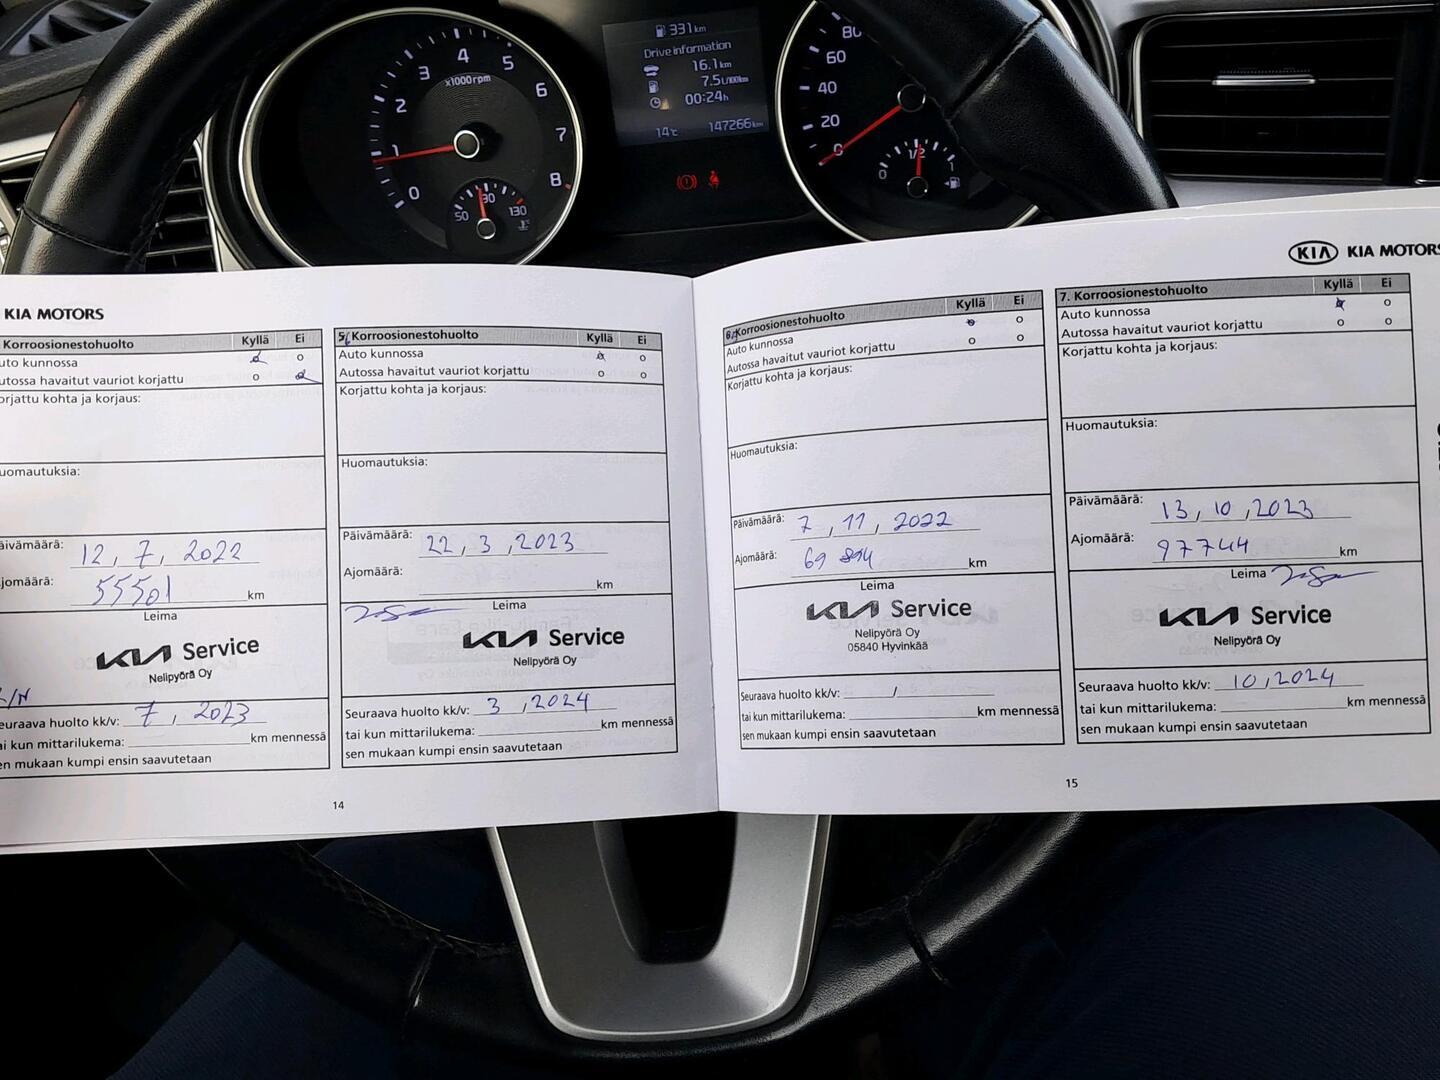 331 km
Drive information
16.1 km
7.5 L/100km
00:24 h
14°C 147266 km
x1000rpm
0 1 2 3 4 5 6 7 8
50 90 130
0 20 40 60 80
0 1/2 1
KIA MOTORS
Korroosionestohuolto Kyllä Ei
uto kunnossa
utossa havaitut vauriot korjattu
orjattu kohta ja korjaus:
uomautuksia:
äivämäärä: 12, 7, 2022
jomäärä: 55501 km
Leima
KIA Service
Nelipyörä Oy
euraava huolto kk/v: 7, 2023
ai kun mittarilukema: km mennessä
en mukaan kumpi ensin saavutetaan
Korroosionestohuolto Kyllä Ei
Auto kunnossa
Autossa havaitut vauriot korjattu
Korjattu kohta ja korjaus:
Huomautuksia:
Päivämäärä: 22, 3, 2023
Ajomäärä: km
Leima
KIA Service
Nelipyörä Oy
Seuraava huolto kk/v: 3, 2024
tai kun mittarilukema: km mennessä
sen mukaan kumpi ensin saavutetaan
14
KIA KIA MOTORS
Korroosionestohuolto Kyllä Ei
Auto kunnossa
Autossa havaitut vauriot korjattu
Korjattu kohta ja korjaus:
Huomautuksia:
Päivämäärä: 7, 11, 2022
Ajomäärä: 69 894 km
Leima
KIA Service
Nelipyörä Oy
05840 Hyvinkää
Seuraava huolto kk/v: /
tai kun mittarilukema: km mennessä
sen mukaan kumpi ensin saavutetaan
7. Korroosionestohuolto Kyllä Ei
Auto kunnossa
Autossa havaitut vauriot korjattu
Korjattu kohta ja korjaus:
Huomautuksia:
Päivämäärä: 13, 10, 2023
Ajomäärä: 97744 km
Leima
KIA Service
Nelipyörä Oy
Seuraava huolto kk/v: 10, 2024
tai kun mittarilukema: km mennessä
sen mukaan kumpi ensin saavutetaan
15